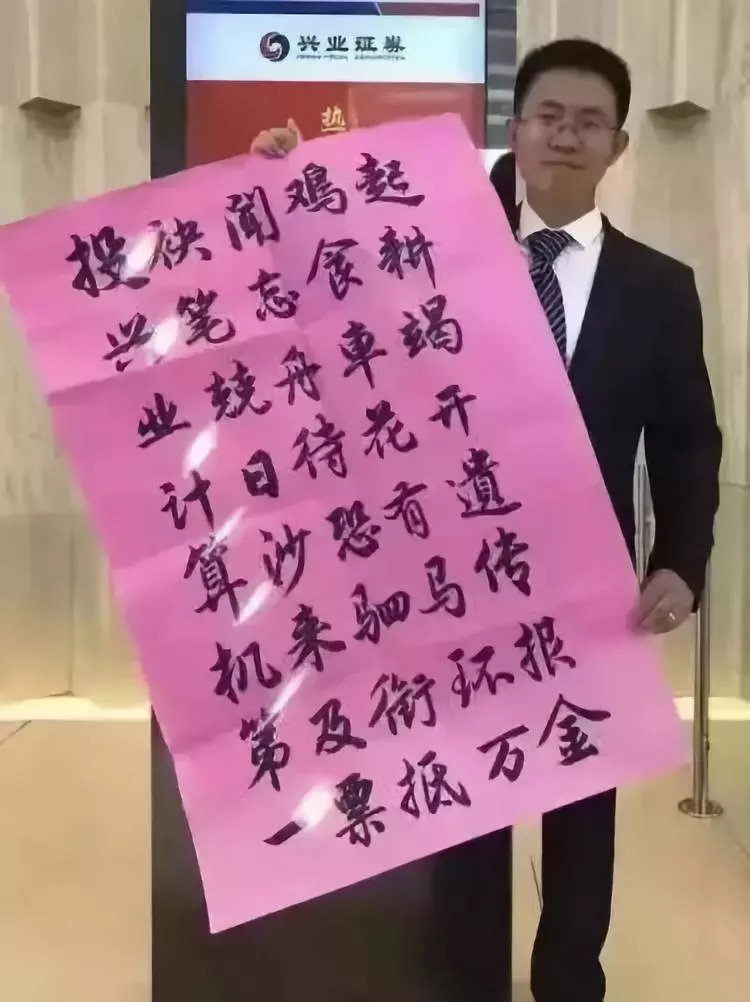 兴业证券
热
投袂闻鸡起
兴笔忘食耕
业兢舟車竭
计日待花开
算沙恐有遗
机来驷马传
第及衔环报
一票抵万金